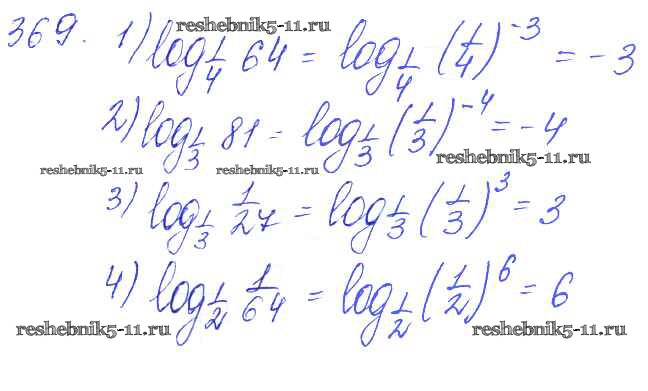 reshebnik5-11.ru
369. 1) log_{1/4} 64 = log_{1/4} (1/4)^{-3} = -3
2) log_{1/3} 81 = log_{1/3} (1/3)^{-4} = -4
reshebnik5-11.ru reshebnik5-11.ru reshebnik5-11.ru
3) log_{1/3} 1/27 = log_{1/3} (1/3)^3 = 3
4) log_{1/2} 1/64 = log_{1/2} (1/2)^6 = 6
reshebnik5-11.ru reshebnik5-11.ru